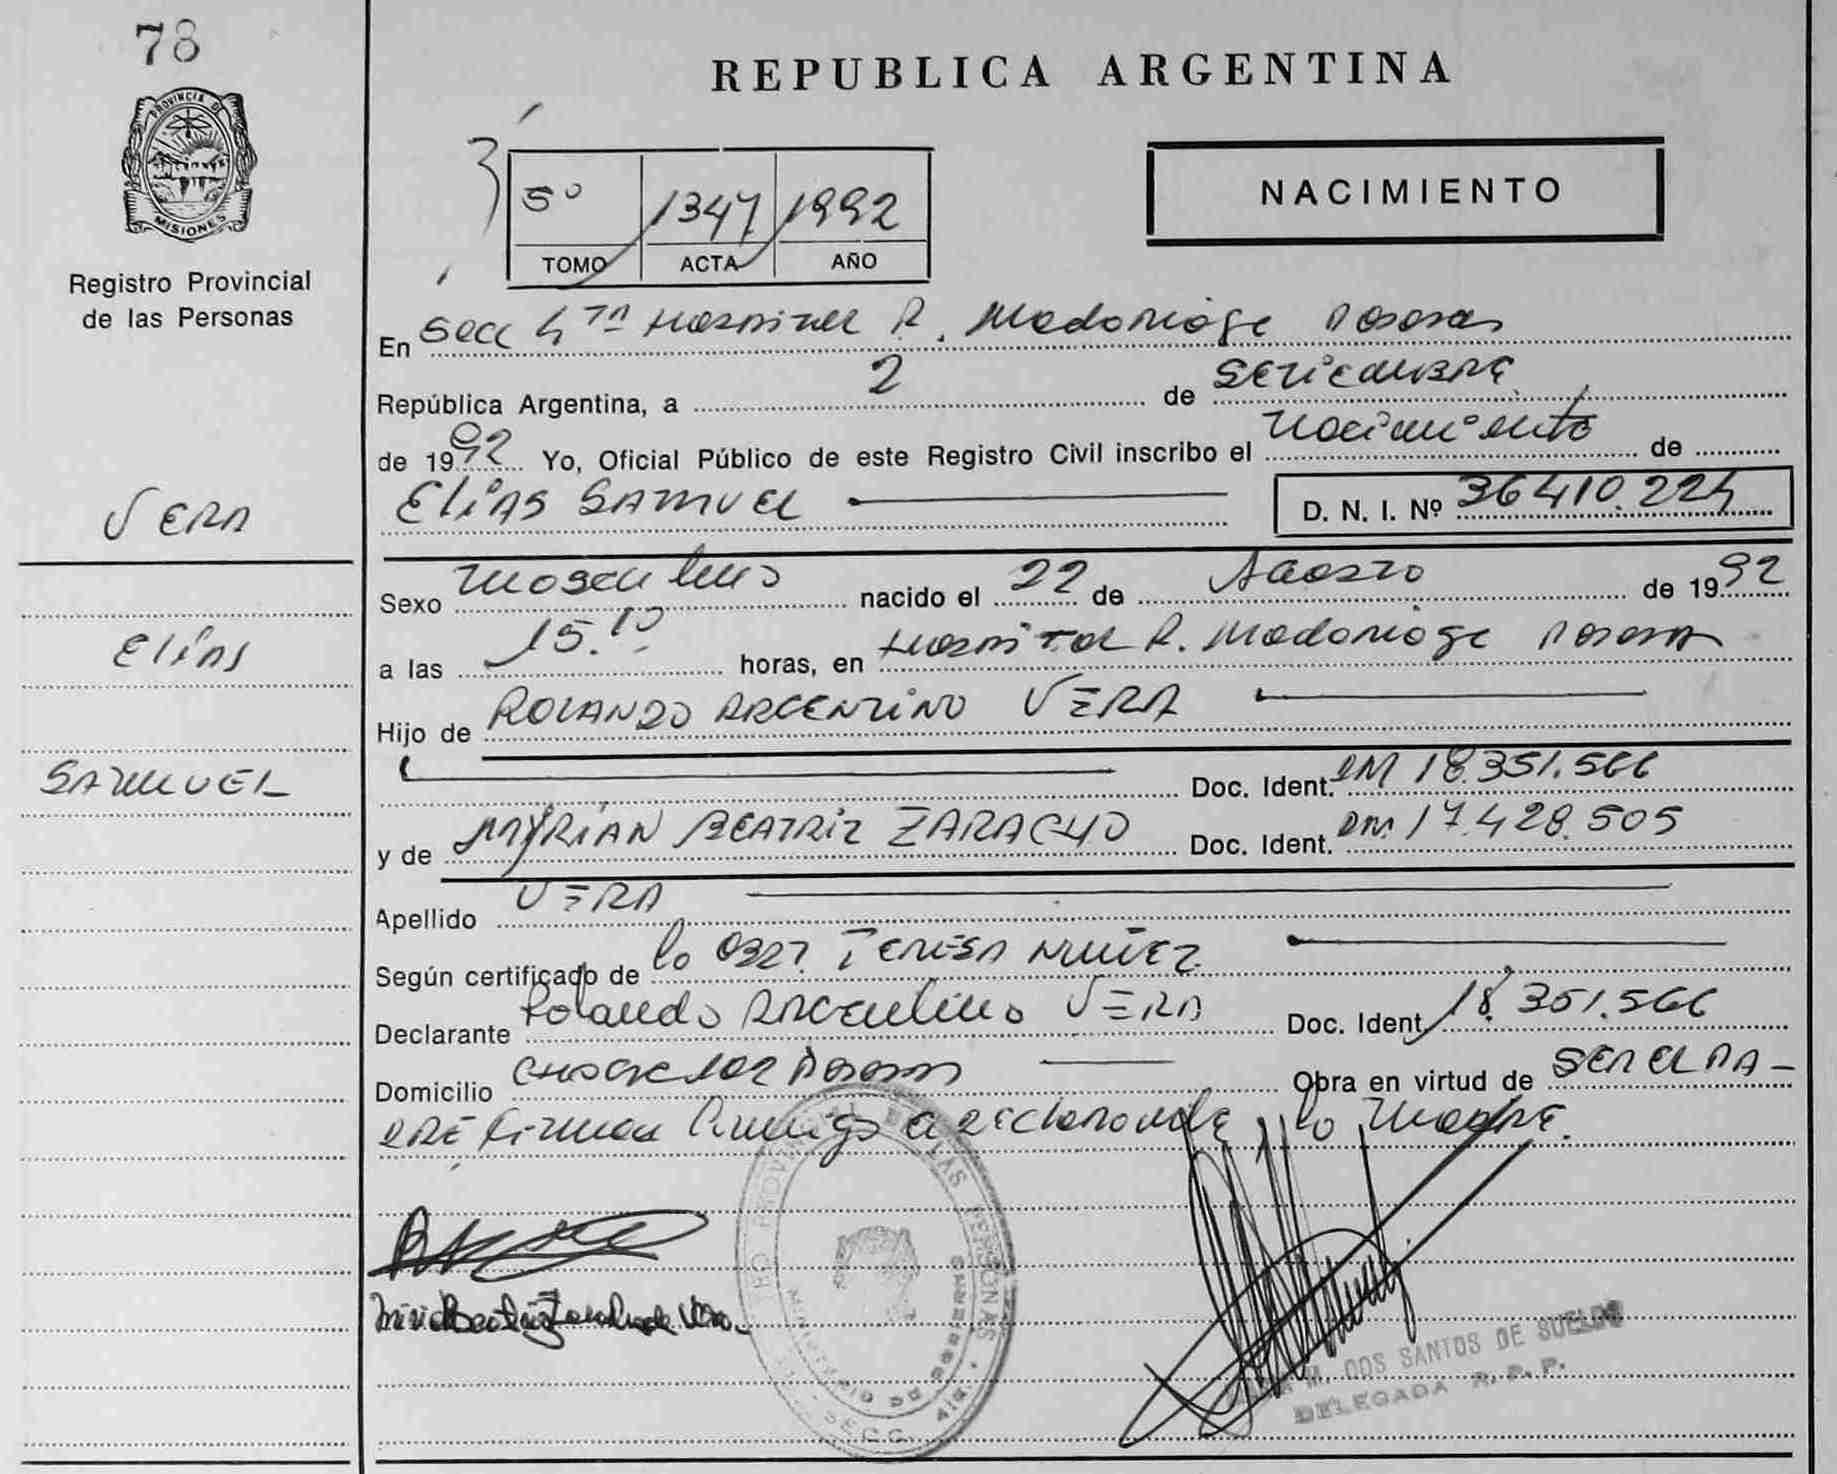 78
PROVINCIA DE
MISIONES
Registro Provincial
de las Personas
VERA
Elías
SAMUEL
REPUBLICA ARGENTINA
NACIMIENTO
5º 1347 1992
TOMO ACTA AÑO
En Secc 4ta Hospital R. Madariaga Posadas
República Argentina, a 2 de Setiembre
de 1992 Yo, Oficial Público de este Registro Civil inscribo el Nacimiento de
Elías Samuel D. N. I. Nº 36.410.224
Sexo Masculino nacido el 22 de Agosto de 1992
a las 15.10 horas, en Hospital R. Madariaga Posadas
Hijo de Rolando Argentino VERA
Doc. Ident. DM 18.351.566
y de MYRIAN BEATRIZ ZARACHO Doc. Ident. DM. 17.428.505
Apellido VERA
Según certificado de la Obst. Teresa Nuñez
Declarante Rolando Argentino VERA Doc. Ident 18.351.566
Domicilio Chacra 102 Posadas Obra en virtud de SER EL PA-
DRE firman conmigo el declarante y la madre.
REGISTRO PROVINCIAL DE LAS PERSONAS
MINISTERIO DE GOBIERNO
4ta. SECC.
M. DOS SANTOS DE SUELDO
DELEGADA R. P. P.